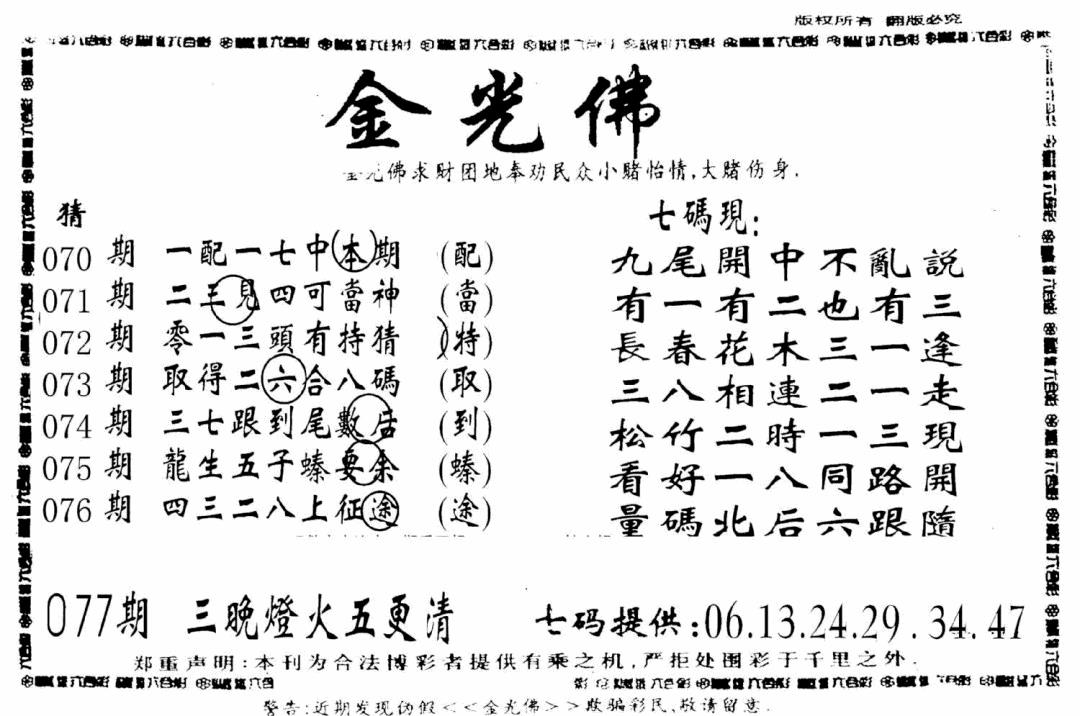 版权所有 翻版必究
金光佛
金光佛求财团地奉劝民众小赌怡情,大赌伤身.
猜
070期 一配一七中本期 (配)
071期 二三見四可當神 (當)
072期 零一三頭有持猜 (特)
073期 取得二六合八碼 (取)
074期 三七跟到尾數店 (到)
075期 龍生五子螓要余 (螓)
076期 四三二八上征途 (途)
七碼現:
九尾開中不亂説
有一有二也有三
長春花木三一逢
三八相連二一走
松竹二時一三現
看好一八同路開
量碼北后六跟隨
077期 三晚燈火五更清 七码提供:06.13.24.29.34.47
郑重声明:本刊为合法博彩者提供有乘之机,严拒处图彩于千里之外.
警告:近期发现伪假<<金光佛>>欺骗彩民,敬请留意.